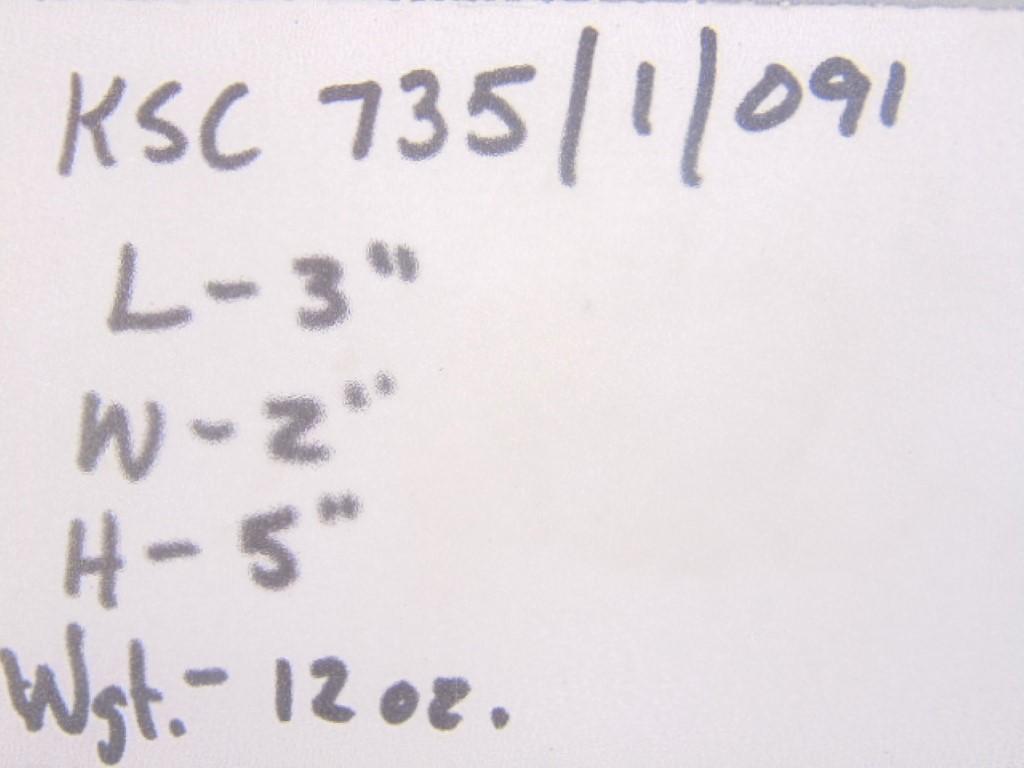 KSC 735/1/091
L - 3"
W - 2"
H - 5"
Wgt. - 12 oz.